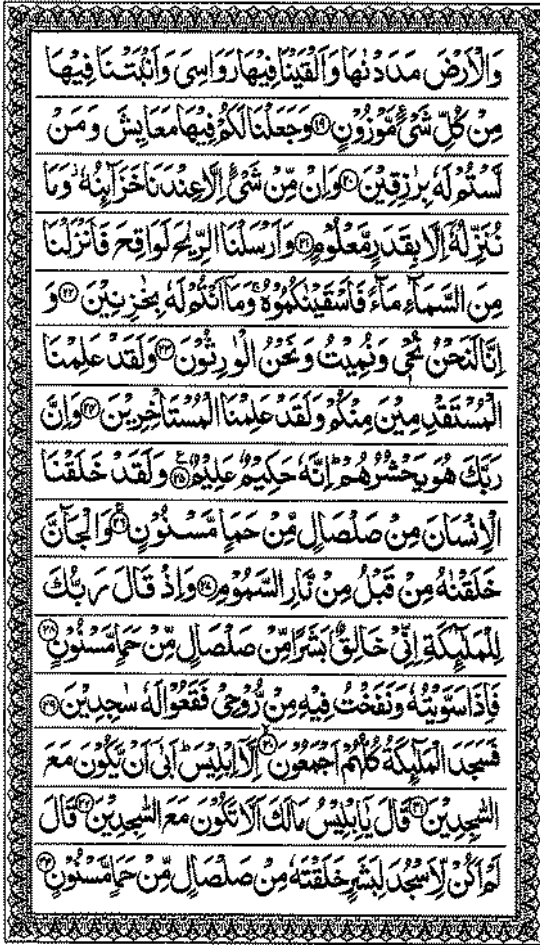 وَالْاَرْضَ مَدَدْنٰهَا وَاَلْقَيْنَا فِيْهَا رَوَاسِيَ وَاَنْۢبَتْنَا فِيْهَا
مِنْ كُلِّ شَيْءٍ مَّوْزُوْنٍ ۝۱۹ وَجَعَلْنَا لَكُمْ فِيْهَا مَعَايِشَ وَمَنْ
لَّسْتُمْ لَهٗ بِرٰزِقِيْنَ ۝۲۰ وَاِنْ مِّنْ شَيْءٍ اِلَّا عِنْدَنَا خَزَآئِنُهٗ ؗ وَمَا
نُنَزِّلُهٗۤ اِلَّا بِقَدَرٍ مَّعْلُوْمٍ ۝۲۱ وَاَرْسَلْنَا الرِّيٰحَ لَوَاقِحَ فَاَنْزَلْنَا
مِنَ السَّمَآءِ مَآءً فَاَسْقَيْنٰكُمُوْهُ ۚ وَمَاۤ اَنْتُمْ لَهٗ بِخٰزِنِيْنَ ۝۲۲ وَ
اِنَّا لَنَحْنُ نُحْيٖ وَنُمِيْتُ وَنَحْنُ الْوٰرِثُوْنَ ۝۲۳ وَلَقَدْ عَلِمْنَا
الْمُسْتَقْدِمِيْنَ مِنْكُمْ وَلَقَدْ عَلِمْنَا الْمُسْتَاْخِرِيْنَ ۝۲۴ وَاِنَّ
رَبَّكَ هُوَ يَحْشُرُهُمْ ؕ اِنَّهٗ حَكِيْمٌ عَلِيْمٌ ۝۲۵ وَلَقَدْ خَلَقْنَا
الْاِنْسَانَ مِنْ صَلْصَالٍ مِّنْ حَمَاٍ مَّسْنُوْنٍ ۝۲۶ وَالْجَآنَّ
خَلَقْنٰهُ مِنْ قَبْلُ مِنْ نَّارِ السَّمُوْمِ ۝۲۷ وَاِذْ قَالَ رَبُّكَ
لِلْمَلٰٓئِكَةِ اِنِّيْ خَالِقٌۢ بَشَرًا مِّنْ صَلْصَالٍ مِّنْ حَمَاٍ مَّسْنُوْنٍ ۝۲۸
فَاِذَا سَوَّيْتُهٗ وَنَفَخْتُ فِيْهِ مِنْ رُّوْحِيْ فَقَعُوْا لَهٗ سٰجِدِيْنَ ۝۲۹
فَسَجَدَ الْمَلٰٓئِكَةُ كُلُّهُمْ اَجْمَعُوْنَ ۝۳۰ اِلَّاۤ اِبْلِيْسَ ؕ اَبٰۤى اَنْ يَّكُوْنَ مَعَ
السّٰجِدِيْنَ ۝۳۱ قَالَ يٰۤاِبْلِيْسُ مَا لَكَ اَلَّا تَكُوْنَ مَعَ السّٰجِدِيْنَ ۝۳۲ قَالَ
لَمْ اَكُنْ لِّاَسْجُدَ لِبَشَرٍ خَلَقْتَهٗ مِنْ صَلْصَالٍ مِّنْ حَمَاٍ مَّسْنُوْنٍ ۝۳۳